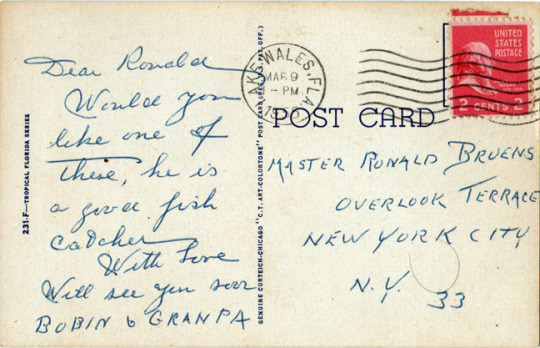 Dear Ronald
Would you
like one of
these, he is
a good fish
catcher
With Love
Will see you soon
BOBIN & GRANPA
231-F—TROPICAL FLORIDA SERIES
GENUINE CURTEICH-CHICAGO "C.T. ART-COLORTONE" POST CARD (REG. U.S. PAT. OFF.)
LAKE WALES, FLA.
MAR 9
- PM
UNITED
STATES
POSTAGE
2 CENTS 2
POST CARD
MASTER RONALD BRUENS
OVERLOOK TERRACE
NEW YORK CITY
N.Y. 33